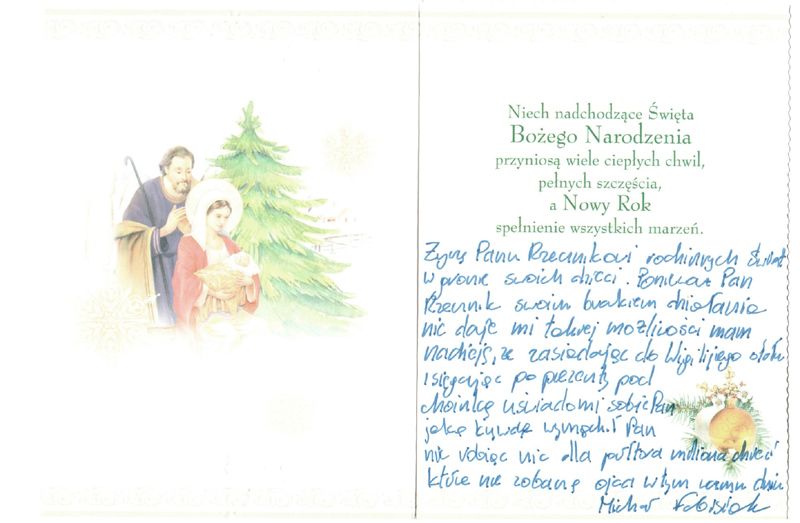 Niech nadchodzące Święta
Bożego Narodzenia
przyniosą wiele ciepłych chwil,
pełnych szczęścia,
a Nowy Rok
spełnienie wszystkich marzeń.
Życzę Panu Rzecznikowi rodzinnych Świąt
w gronie swoich dzieci. Ponieważ Pan
Rzecznik swoim brakiem działania
nie daje mi takiej możliwości mam
nadzieję, że zasiadając do Wigilijnego stołu
i sięgając po prezenty pod
choinkę uświadomi sobie Pan
jaką krzywdę wyrządził Pan
nie robiąc nic dla półtora miliona dzieci
które nie zobaczą ojca w tym dniu
Michał Fabisiak